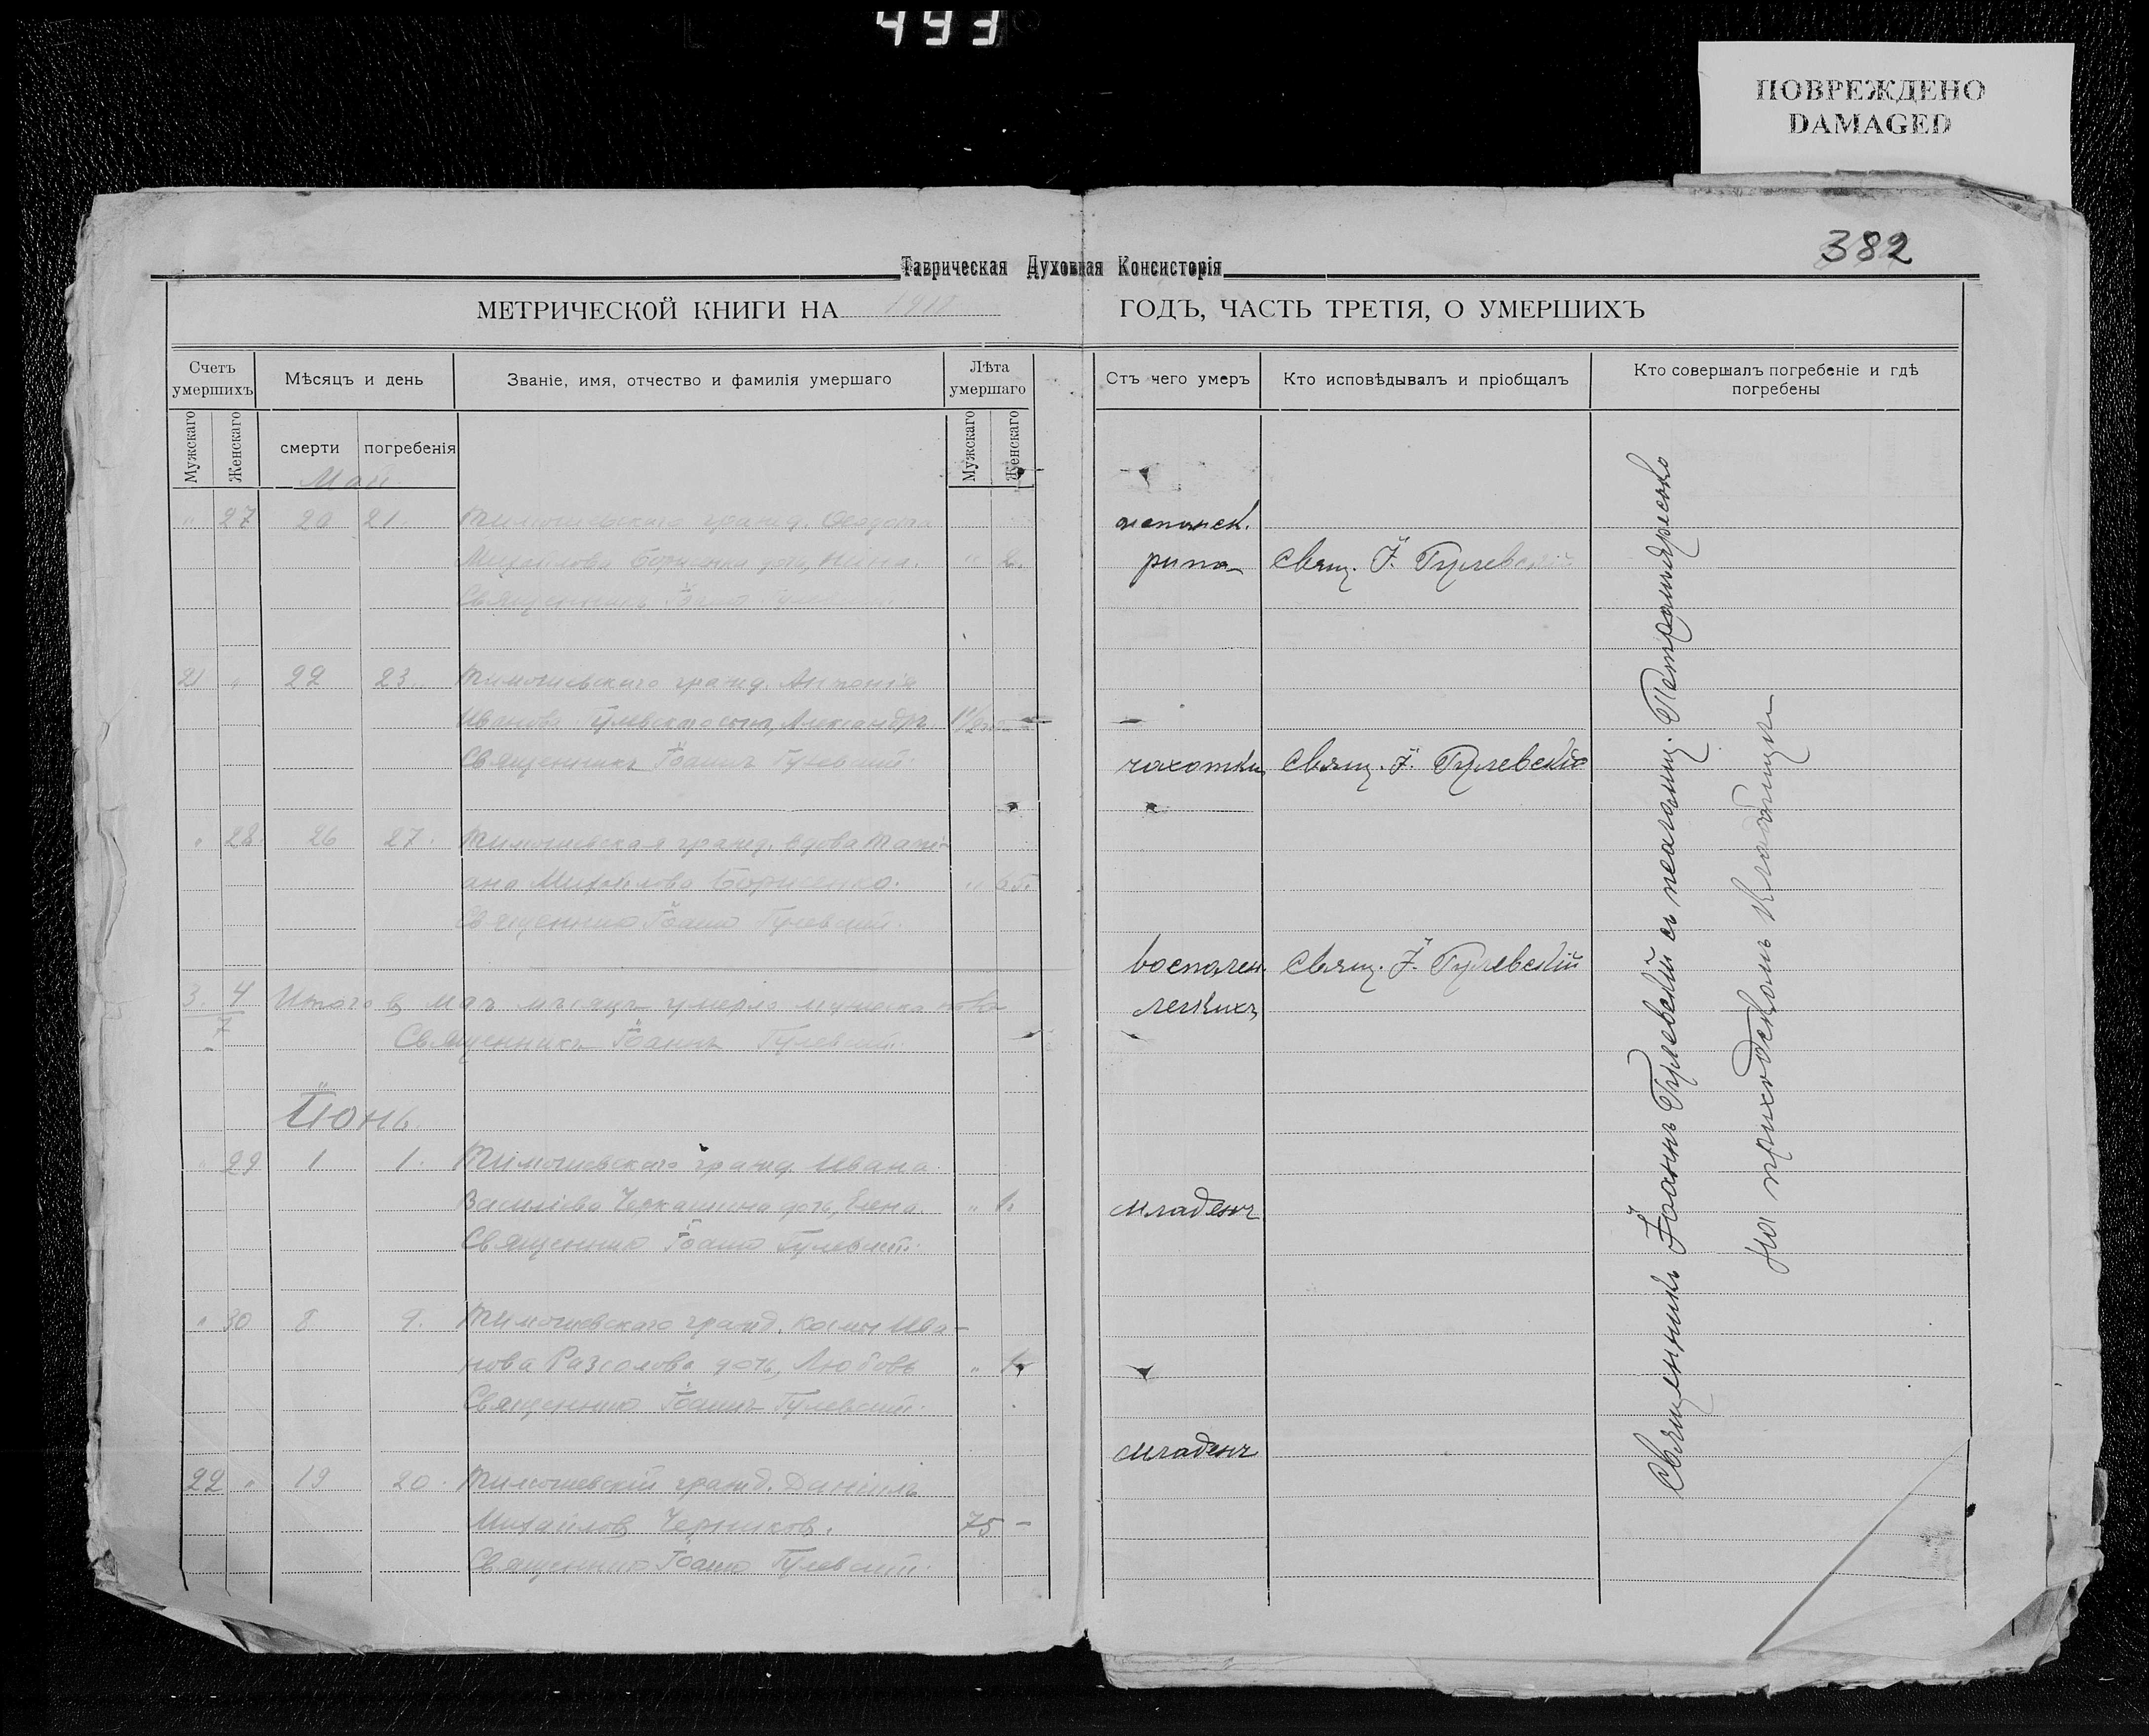 493
ПОВРЕЖДЕНО
DAMAGED
382
Таврическая Духовная Консисторія
МЕТРИЧЕСКОЙ КНИГИ НА
ГОДЪ, ЧАСТЬ ТРЕТІЯ, О УМЕРШИХЪ
Счетъ умершихъ
Мѣсяцъ и день
Званіе, имя, отчество и фамилія умершаго
Лѣта умершаго
Стъ чего умеръ
Кто исповѣдывалъ и пріобщалъ
Кто совершалъ погребеніе и гдѣ погребены
Мужскаго
Женскаго
смерти
погребенія
Мужскаго
Женскаго
Май
" 27 20 21. Тимошевскаго гражд.
Михайлова дочь, Нина. 2.
Священникъ Іоаннъ Гулевскій.
21 " 22 23. Тимошевскаго гражд. Антонія
Иванова Гулевскаго сынъ, Александръ. 1 1/2
Священникъ Іоаннъ Гулевскій.
" 28 26 27. Тимошевская гражд. вдова Тать-
ана Михайлова Борисенко. " 65.
Священникъ Іоаннъ Гулевскій.
3. 4 Итого въ маѣ мѣсяцѣ умерло
7
Священникъ Іоаннъ Гулевскій.
Іюнь.
" 29 1 1. Тимошевскаго гражд. Ивана
Василіева Черкашина дочь, Елена " 1.
Священникъ Іоаннъ Гулевскій.
" 30 8 9. Тимошевскаго гражд. Косьмы Ива-
нова дочь, Любовь "
Священникъ Іоаннъ Гулевскій.
22 " 19 20. Тимошевскій гражд. Даніилъ
Михайловъ Черниковъ. 75 -
Священникъ Іоаннъ Гулевскій.
испанск.
Свящ. І. Гулевскій
чахотки Свящ. І. Гулевскій
воспален. Свящ. І. Гулевскій
легкихъ
младенч
младенч
Священникъ Іоаннъ Гулевскій съ псаломщ.
На приходскомъ кладбищѣ